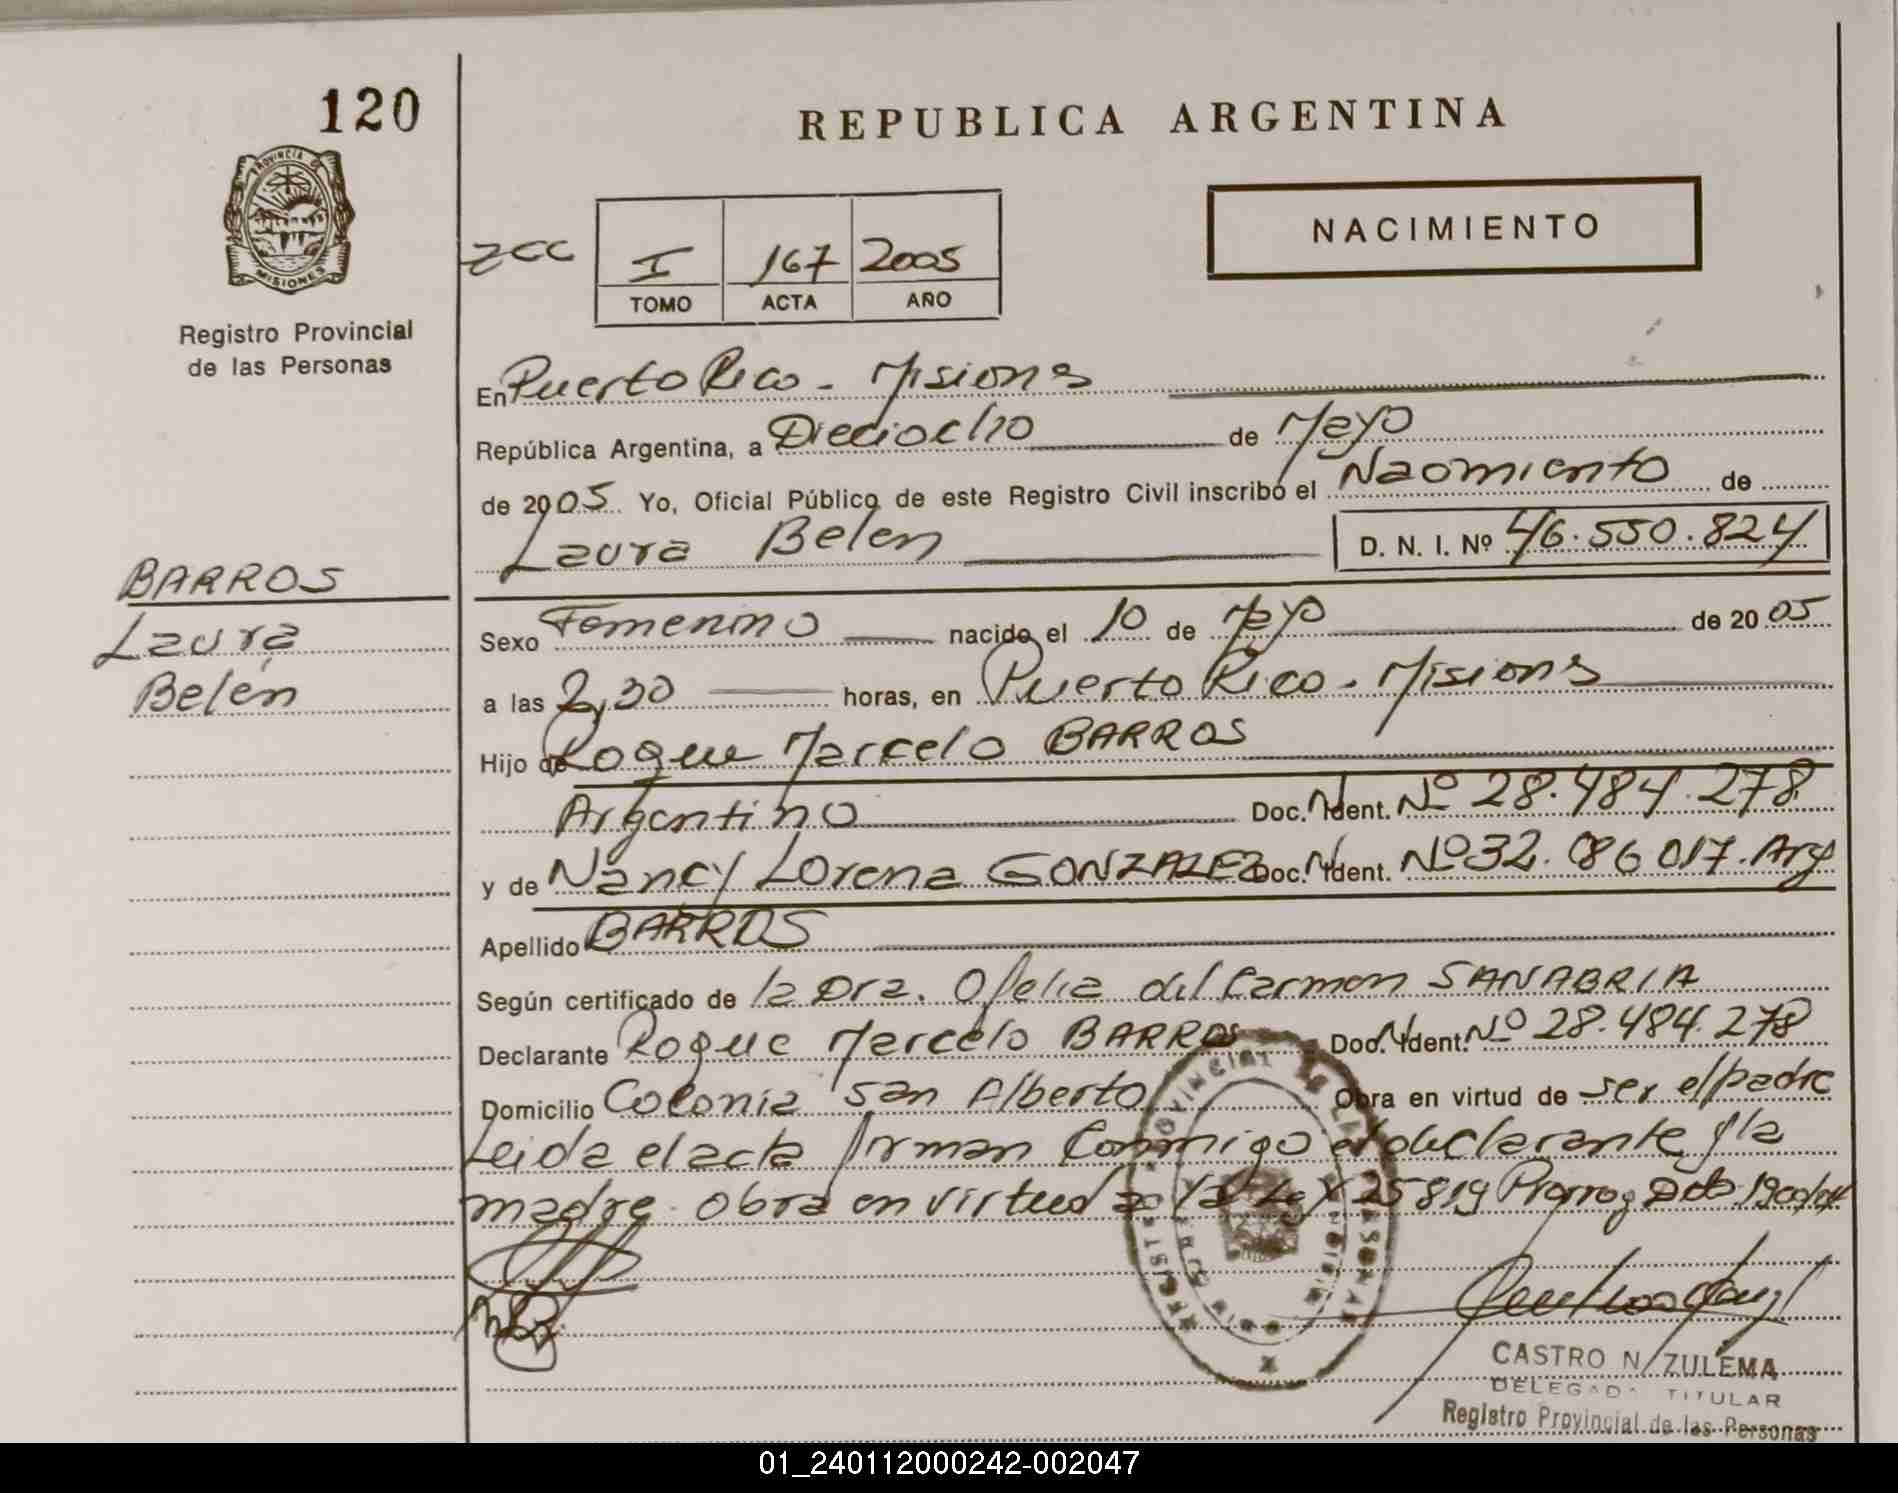 120
REPUBLICA ARGENTINA
PROVINCIA DE MISIONES
Registro Provincial
de las Personas
NACIMIENTO
I 167 2005
TOMO ACTA AÑO
En Puerto Rico - Misiones
República Argentina, a Dieciocho de Mayo
de 2005 Yo, Oficial Público de este Registro Civil inscribo el Nacimiento de
Laura Belen D. N. I. Nº 46.550.824
BARROS
Laura
Belén
Sexo Femenino nacido el 10 de Mayo de 2005
a las 2,30 horas, en Puerto Rico - Misiones
Hijo de Roque Marcelo BARROS
Argentino Doc. Ident. Nº 28.484.278
y de Nancy Lorena GONZALEZ Doc. Ident. Nº 32.086017. Arg
Apellido BARROS
Según certificado de la Dra. Ofelia del Carmen SANABRIA
Declarante Roque Marcelo BARROS Doc. Ident. Nº 28.484.278
Domicilio Colonia San Alberto Obra en virtud de ser el padre
Leida el acta firman Conmigo el declarante y la
madre. Obra en virtud a la Ley 25819
CASTRO N. ZULEMA
DELEGADA TITULAR
Registro Provincial de las Personas
01_240112000242-002047